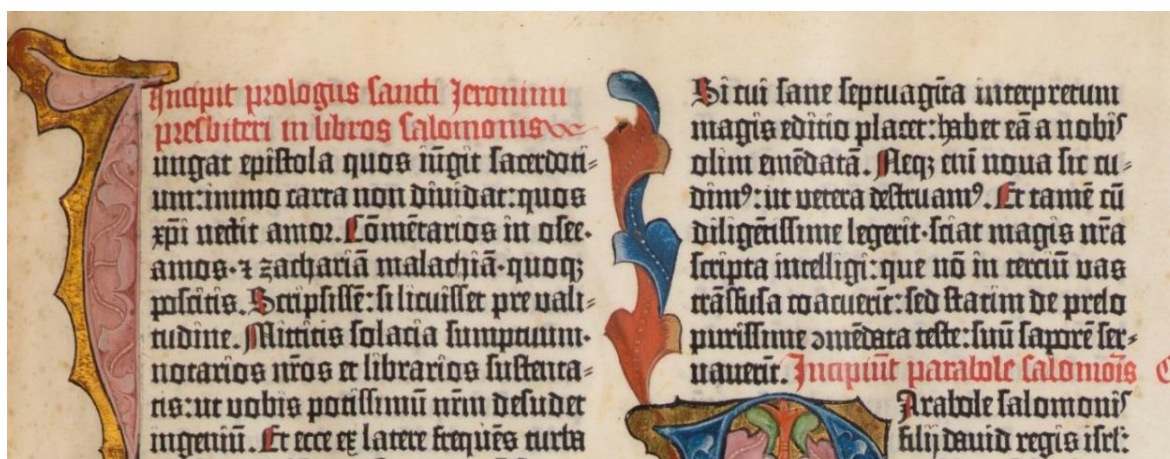 Incipit prologus sancti Jeronimi
presbiteri in libros salomonis
ungat epistola quos iũgit sacerdoti⸗
um: immo carta non diuidat: quos
xp̃i nectit amor. Cõmẽtarios in osee.
amos. ⁊ zachariã malachiã. quoqꝫ
poscitis. Scripsissẽ: si licuisset pre uali⸗
tudine. Mittitis solacia sumptuum.
notarios nr̃os et librarios sustenta⸗
tis: ut uobis potissimũ nr̃m desudet
ingeniũ. Et ecce ex latere frequẽs turba
Si cui sane septuagĩta interpretum
magis editio placet: habet eã a nobis
olim emẽdatã. Neqꝫ enĩ noua sic cu⸗
dimꝰ: ut uetera destruamꝰ. Et tamẽ cũ
diligẽtissime legerit. sciat magis nr̃a
scripta intelligi: que nõ in terciũ uas
trãsfusa coacuerĩt: sed statim de prelo
purissime ꝯmẽdata teste: suũ saporẽ ser⸗
uauerĩt. Incipiũt parabole salomõis
Arabole salomonis
filij dauid regis isrl̃: